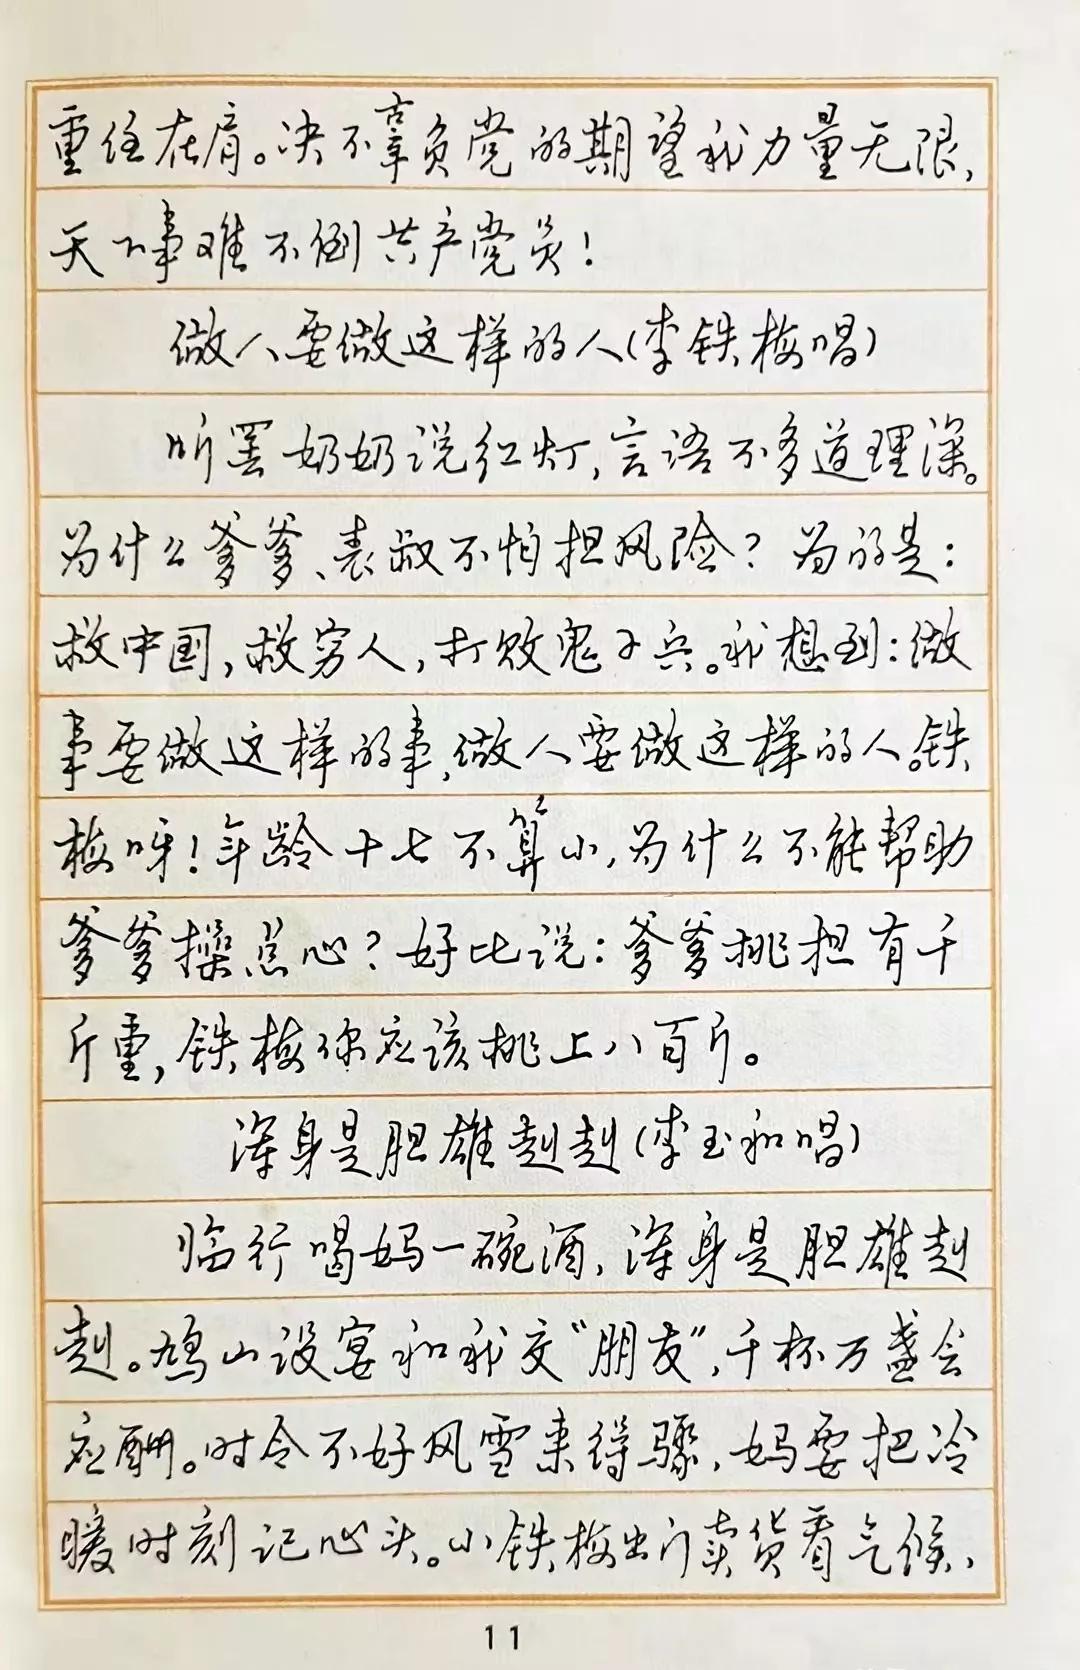 重任在肩。决不辜负党的期望我力量无限，
天下事难不倒共产党员！
做人要做这样的人（李铁梅唱）
听罢奶奶说红灯，言语不多道理深。
为什么爹爹、表叔不怕担风险？为的是：
救中国，救穷人，打败鬼子兵。我想到：做
事要做这样的事，做人要做这样的人。铁
梅呀！年龄十七不算小，为什么不能帮助
爹爹操点心？好比说：爹爹挑担有千
斤重，铁梅你应该挑上八百斤。
浑身是胆雄赳赳（李玉和唱）
临行喝妈一碗酒，浑身是胆雄赳
赳。鸠山设宴和我交“朋友”，千杯万盏会
应酬。时令不好风雪来得骤，妈要把冷
暖时刻记心头。小铁梅出门卖货看气候、
11